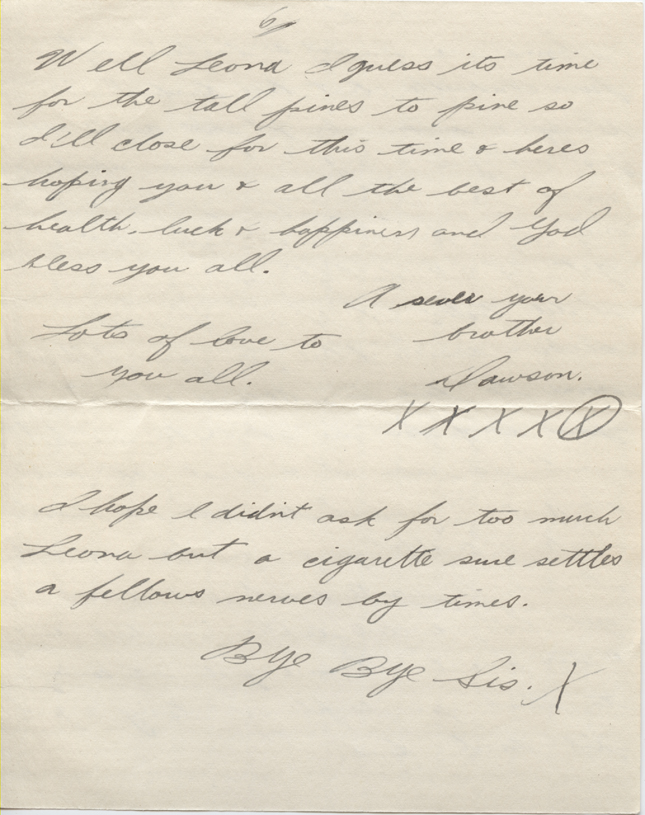 6/
Well Leona I guess its time
for the tall pines to pine so
I'll close for this time & heres
hoping you & all the best of
health, luck & happiness and God
bless you all.
A sever your
brother
Lots of love to
you all.
Dawson.
X X X X X
I hope I didn't ask for too much
Leona but a cigarette sure settles
a fellows nerves by times.
Bye Bye Sis. X